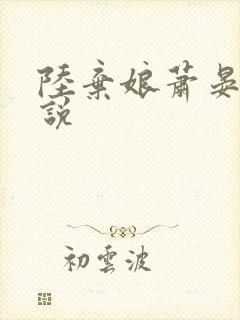 陸棄娘蕭晏
說
初雲波